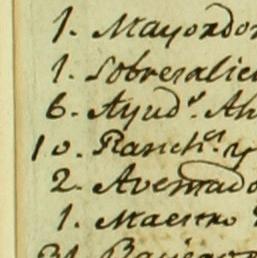 1. Mayordo
1. Sobresalie
6. Ayud.s Ah
10. Ranch.s y
2. Aventado
1. Maestro